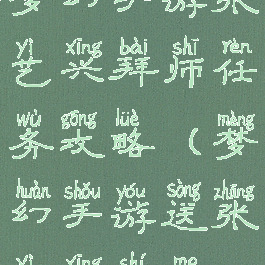 梦幻手游张
yì xīng bài shī rèn
艺兴拜师任
wù gōng lüè mèng
务攻略（梦
huàn shǒu yóu sòng zhāng
幻手游送张
yì xīng shí me